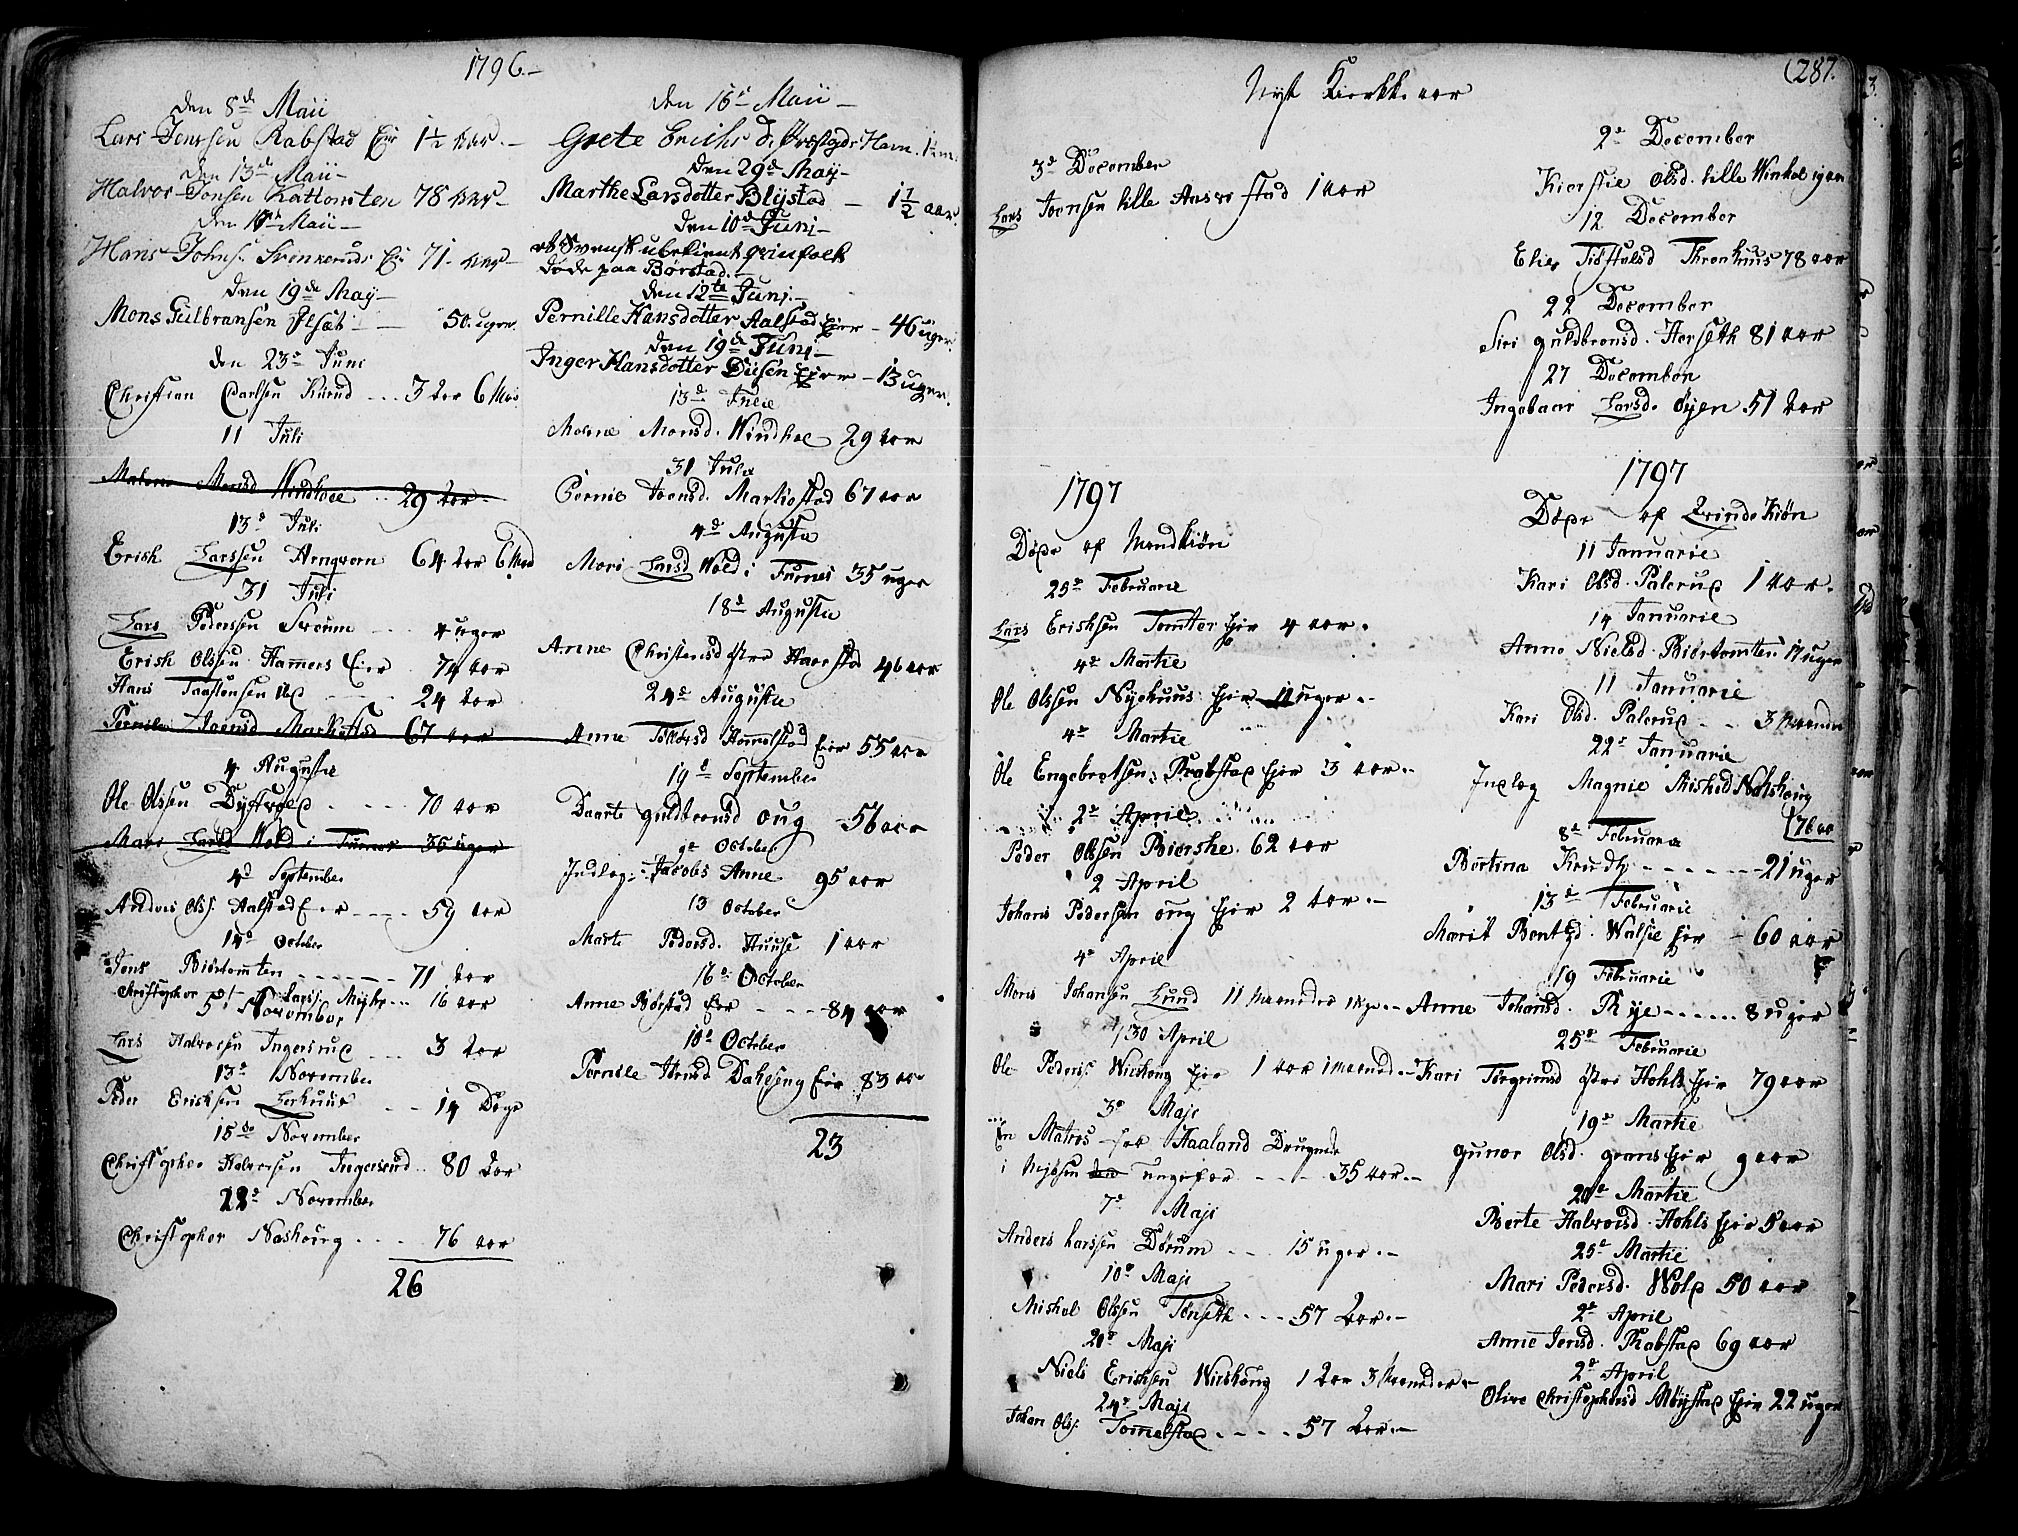 1796.
Den 8de Maii
Lars Jenssen Rabstad Eier 1½ aar.
Den 13de Maii
Halvor Jonsen Kattomten 78 aar
Den Maii
Hans Johns. Svenkerud Ei 71. aar
Den 19de May
Mons Gulbransen 50. uger
den 23de Juni
Christian Carlsen Kurud 3 aar 6 Mar
11 Juli
Malene Monsd Windhoe 29 aar
13de Juli
Erich Larssen Arnqvern 64 aar 6 Mad
31 Juli
Lars Pederssen Sveum 4 uger
Erich Olssen Hammers Eier 74 aar
Hans Taastensen 24 aar
Pernile Joensd Markestad 67 aar
4 Augustie
Ole Olssen Dystvold 70 aar
Mari Larsd Wold i Furnes 35 uger
4de September
Anders Olss. Aalstad Eier 59 aar
14de October
Jens Biørtomten 71 aar
Christopher Larss. Myhr 16 aar
5te November
Lars Halvorsen Ingersrud 3 aar
13de November
Peder Ericksen Lerhuus 14 Dage
15de November
Christopher Halvorsen Ingersrud 80 aar
22de November
Christopher Nashoug 76 aar
26
Den 16de Maii
Grete Erichs d. Præstgdr Ham. 1½ m.
Den 29de May
Marthe Larsdotter Blystad 1½ aar.
Den 10de Junj
et Svensk ubekient qvinfolk
døde paa Børstad.
Den 12te Junj
Pernille Hansdotter Aalstad Eier 46 uger.
den 19de Junj
Inger Hansdotter Disen Eier 13 uger.
13de Julie
Malene Monsd. Windhoe 29 aar
31 Julie
Pernie Joensd. Markestad 67 aar
4de Augustie
Mari Larsd Wold i Furnes 35 uger
18de Augustie
Anne Christensd Østre Haarstad 46 aar
24de Augustie
Anne Tolførsd Hommelstad Eier 55 aar
19de September
Daarte Guldbrandsd Oug 56 aar
9de October
Indlæg: Jacobs Anne 95 aar
13 October
Marte Pedersd. Huuse 1 aar
16de October
Anne Børstad Eier 84 aar
10de October
Pernille Jensd Dahleng Eier 83 aar
23
Nyt Kierkke aar
(287.
3de December
Lars Joensen lille Aasvestad 1 aar
1797
Døde af Mandkiøn
25de Februarie
Lars Erichsen Tomter Eier 4 aar.
4de Martie
Ole Olssen Nyehuus Eier 11 uger.
4de Martie
Ole Engebretsen Rabstad Eier 3 aar.
2de April
Peder Olssen Bierche 62 aar
2 April
Johans Pedersen Oug Eier 2 aar.
4de April
Mons Johansen Lund 11 Maaneder 1 Uge
30 April
Ole Peders. Wichoug Eier 1 aar 1 Maaned
3de Maji
En Matros Haaland Drugnede
i Mjøsen ungefær 35 aar.
7de Maji
Anders Larssen Dørum 15 uger.
10de Maji
Michel Olssen Tønseth 57 aar.
20de Maji
Niels Erichsen Wichoug 1 aar 3 Maaneder
24de Maji
Johan Olss. Tommelstad 57 aar.
2de December
Kierstie Olsd. lille Winkel 19 aar
12 December
Elies Throshuus 78 aar
22 December
Siri Guldbransd. Horseth 81 aar
27 December
Ingebaar Larsd. Øyen 51 aar
1797
Døde af Qvinde Kiøn
11 Januarie
Kari Olsd. Palerud 1 aar.
14 Januarie
Anne Nielsd. Biørtomten 17 uger
11 Januarie
Kari Olsd. Palerud 3 Maaneder
22de Januarie
Indlæg Magnie Michelsd Nashoug
76 aar
8de Februarie
Bertina Krudtz 21 uger
13de Februarie
Marit Bentsd. Walsie Eier 60 aar
19 Februarie
Anne Johansd. Rye 8 uger
25de Februarie
Kari Torgrimsd østre Hohls Eier 79 aar
19de Martie
Gunor Olsd. Grans Eier 9 aar
20de Martie
Berte Halvorsd. Hohls Eier 5 aar
25de Martie
Mari Pedersd. Wold 50 aar
2de April
Anne Jensd. Rabstad 69 aar
2de April
Olive Christophersd Møystad Eier 22 uger